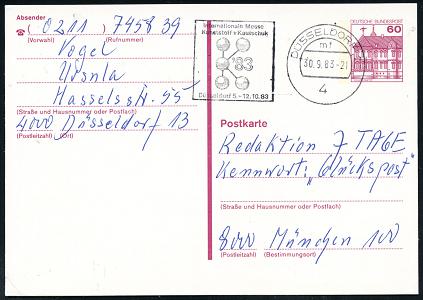 Absender
(0211) 7458 39
(Vorwahl) (Rufnummer)
Vogel
Ursula
Hasselsstr. 55
(Straße und Hausnummer oder Postfach)
4000 Düsseldorf 13
(Postleitzahl) (Ort)
Internationale Messe
Kunststoff + Kautschuk
K'83
Düsseldorf 5.-12.10.83
DÜSSELDORF
mf
30.9.83-21
4
DEUTSCHE BUNDESPOST
60
Postkarte
Redaktion 7 TAGE
Kennwort: „Glückspost"
(Straße und Hausnummer oder Postfach)
8000 München 100
(Postleitzahl) (Bestimmungsort)